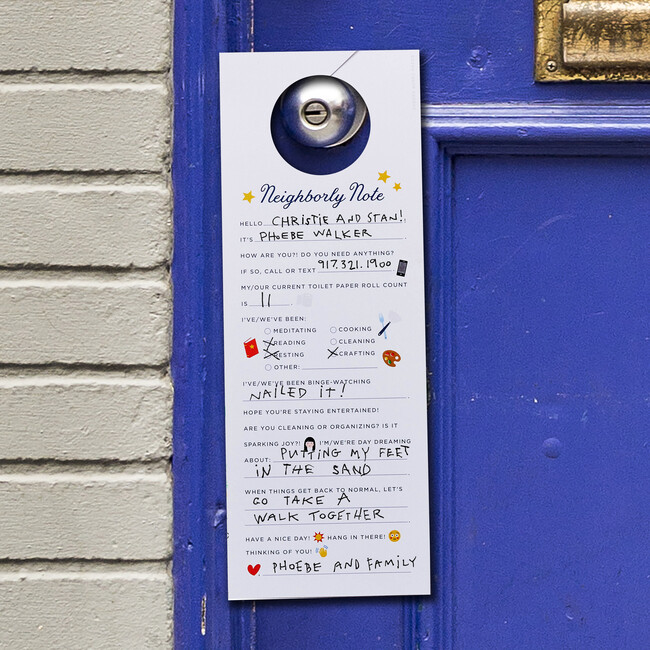 Neighborly Note
HELLO CHRISTIE AND STAN!
IT'S PHOEBE WALKER
HOW ARE YOU?! DO YOU NEED ANYTHING?
IF SO, CALL OR TEXT 917.321.1900
MY/OUR CURRENT TOILET PAPER ROLL COUNT
IS 11.
I'VE/WE'VE BEEN:
MEDITATING COOKING
READING CLEANING
RESTING CRAFTING
OTHER:
I'VE/WE'VE BEEN BINGE-WATCHING
NAILED IT!
HOPE YOU'RE STAYING ENTERTAINED!
ARE YOU CLEANING OR ORGANIZING? IS IT
SPARKING JOY?! I'M/WE'RE DAY DREAMING
ABOUT: PUTTING MY FEET
IN THE SAND
WHEN THINGS GET BACK TO NORMAL, LET'S
GO TAKE A
WALK TOGETHER
HAVE A NICE DAY! HANG IN THERE!
THINKING OF YOU!
PHOEBE AND FAMILY